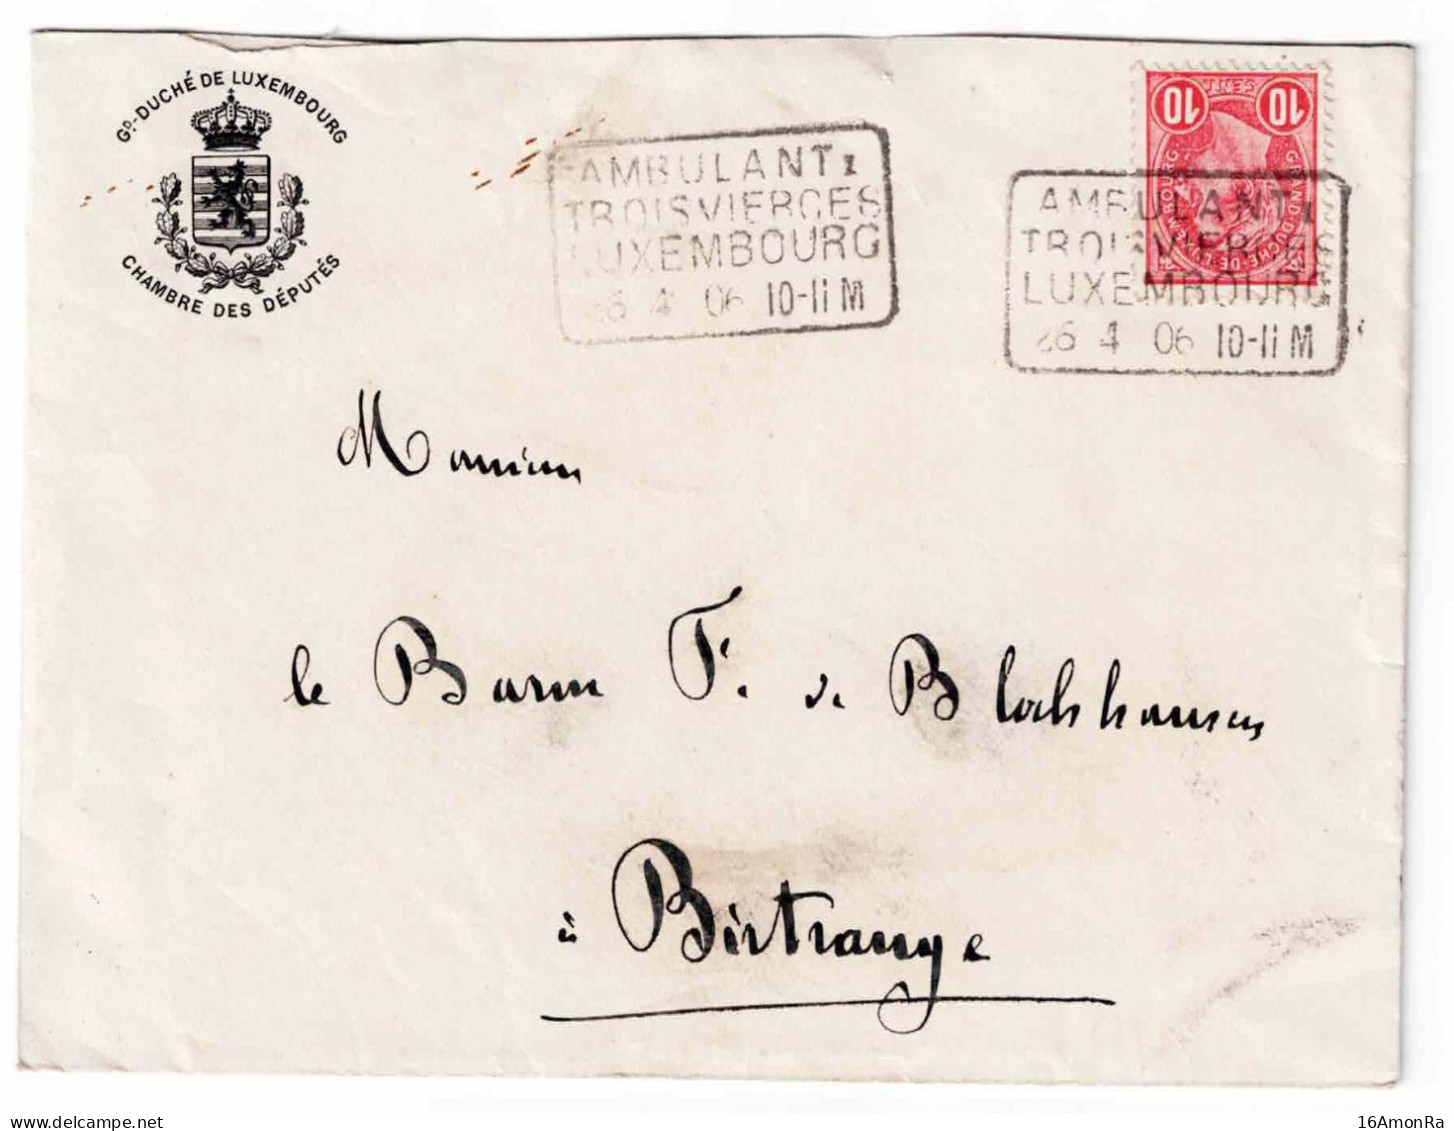 Gᴰ-DUCHÉ DE LUXEMBOURG
CHAMBRE DES DÉPUTÉS
AMBULANT I
TROISVIERGES
LUXEMBOURG
26 4 06 10-11 M
10 CENT. 10
GRAND-DUCHÉ-DE-LUXEMBOURG
AMBULANT I
TROISVIERGES
LUXEMBOURG
26 4 06 10-11 M
Monsieur
le Baron F. de Blochhausen
à Birtrange
16AmonRa